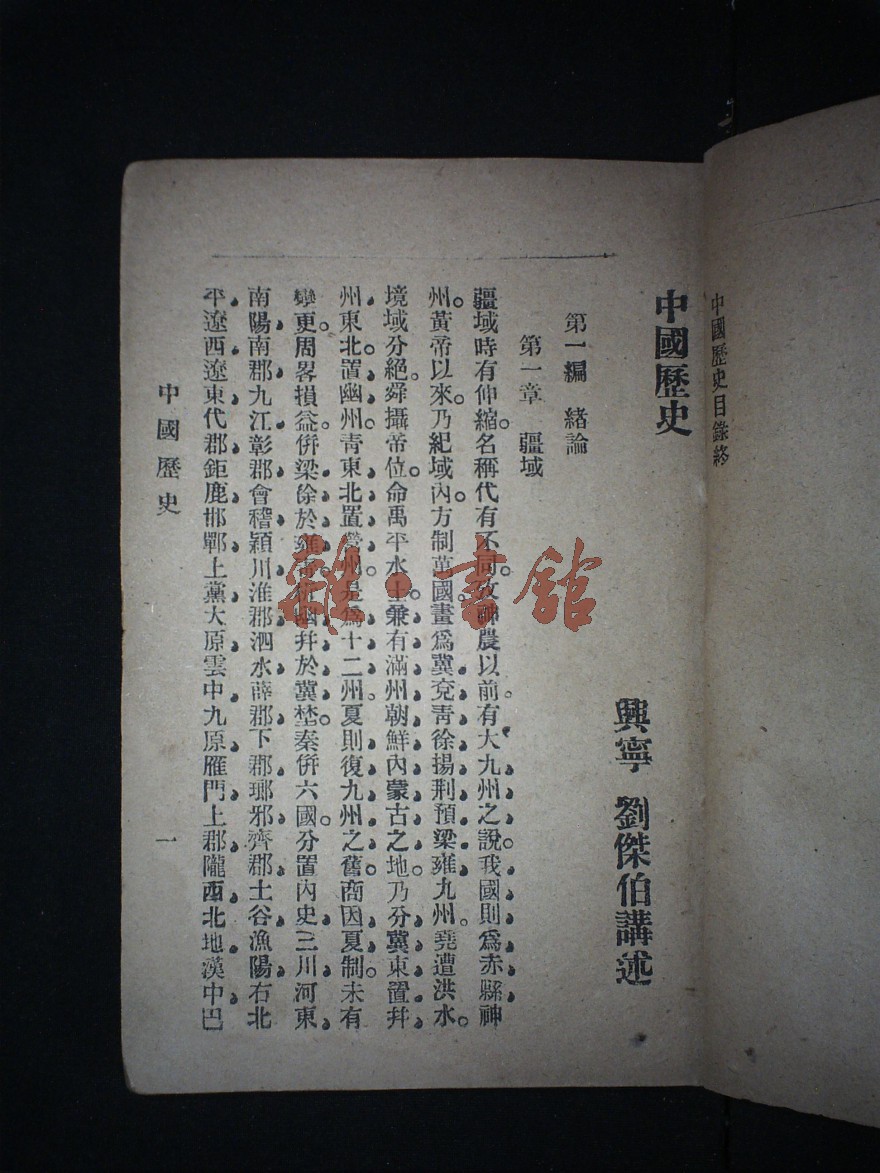 中國歷史目錄終
中國歷史
興寧 劉傑伯講述
第一編 緒論
第一章 疆域
疆域時有伸縮。名稱代有不同。攷神農以前。有大九州之說。我國則爲赤縣神
州。黃帝以來。乃紀域內。方制萬國。畫爲冀兗靑徐揚荆預梁雍九州。堯遭洪水。
境域分絕。舜攝帝位。命禹平水土。兼有滿州朝鮮內蒙古之地。乃分冀東置幷
州。東北置幽州。靑東北置營州。是爲十二州。夏則復九州之舊。商因夏制。未有
變更。周畧損益。併梁徐於雍靑。析幽幷於冀。埊秦併六國。分置內史三川河東
南陽南郡九江彰郡會稽潁川淮郡泗水薛郡下郡瑯邪齊郡土谷漁陽右北
平遼西遼東代郡鉅鹿邯鄲上黨大原雲中九原雁門上郡隴西北地漢中巴
中國歷史 一
雜·書館